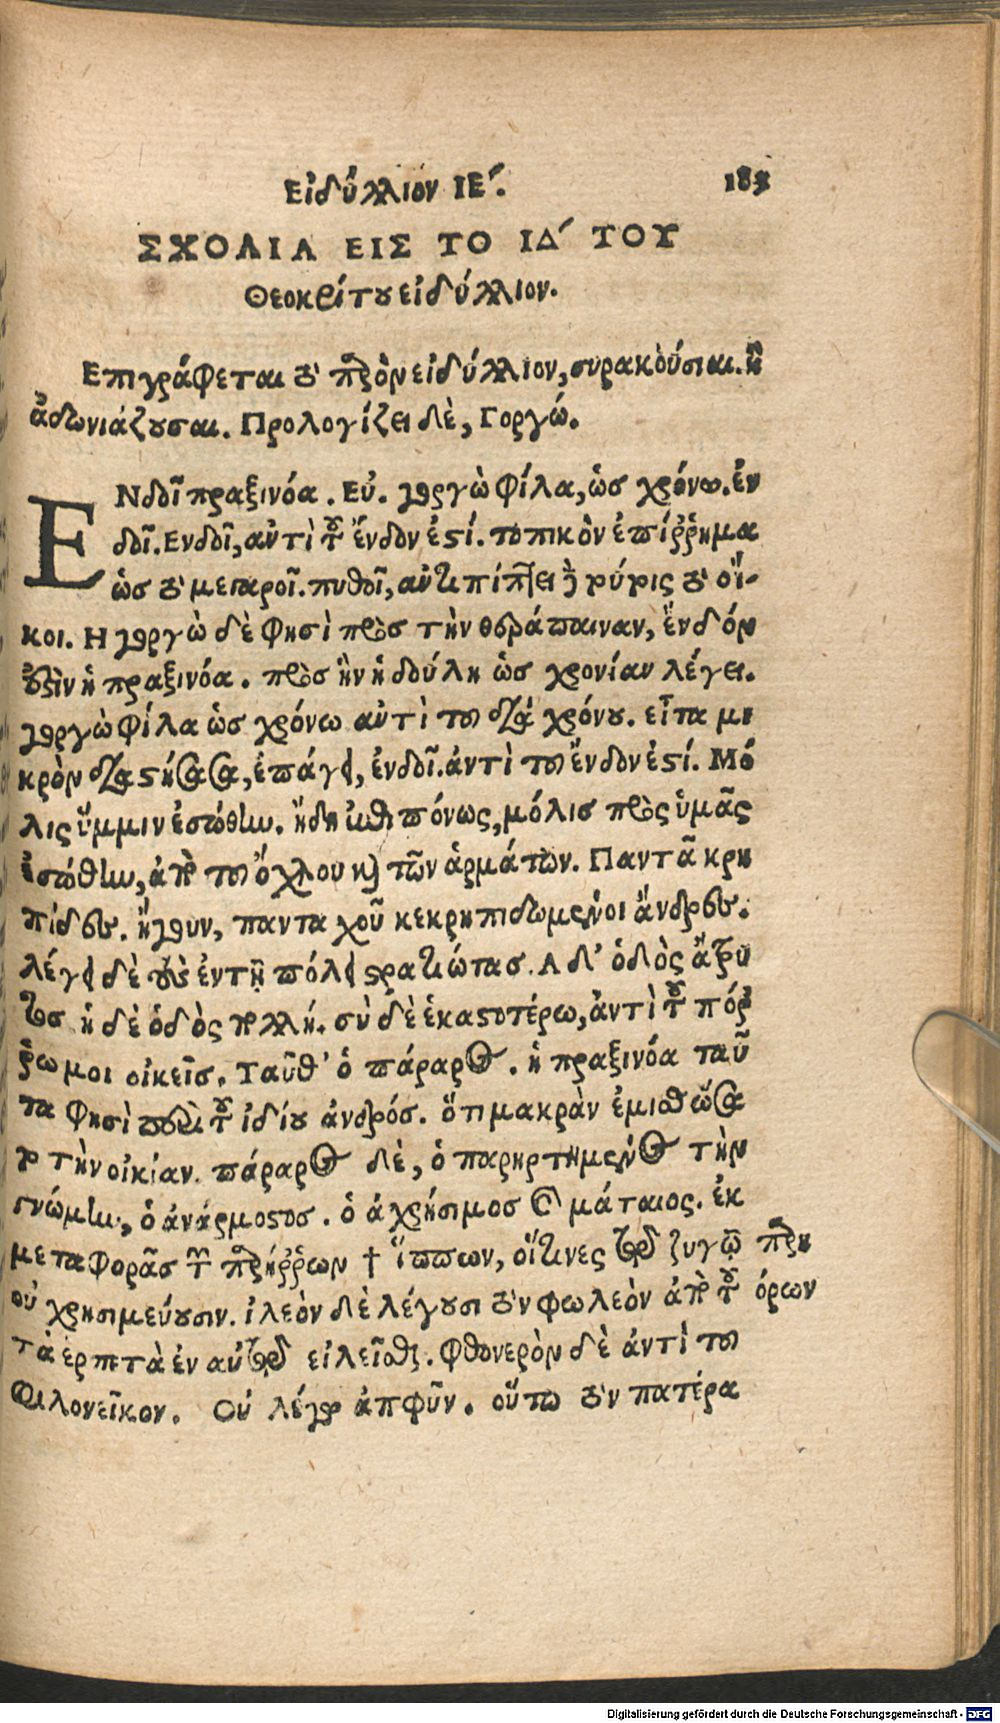 Εἰδύλλιον ΙΕ΄. 183
ΣΧΟΛΙΑ ΕΙΣ ΤΟ ΙΔ΄ ΤΟΥ
Θεοκρίτου εἰδύλλιον.
Επιγράφεται τὸ παρὸν εἰδύλλιον, συρακούσιαι. ἢ
ἀδωνιάζουσαι. Προλογίζει δὲ, Γοργώ.
ΕΝδοῖ πραξινόα. Εὐ. γοργὼ φίλα, ὡσ χρόνω. ἐν
δοῖ. Ενδοῖ, αὐτὶ τοῦ ἔνδον ἐστί. τοπικὸν ἐπίῤῥημα
ὡσ τὸ μεγαροῖ. πυθοῖ, τὸ οἴ-
κοι. Η γοργὼ δὲ φησὶ πρὸσ τὴν θεράπαιναν, ἔνδόν
ἐστὶν ἡ πραξινόα. πρὸσ ἣν ἡ δούλη ὡσ χρονίαν λέγει.
γοργὼ φίλα ὡσ χρόνω αὐτὶ τοῦ διὰ χρόνου. εἶτα μι
κρὸν διαστήσασα, ἐπάγει, ἐνδοῖ. ἀντὶ τοῦ ἔνδον ἐστί. Μό
λις ὔμμιν ἐσώθην. ἤδη πόνως, μόλισ πρὸς ὑμᾶς
ἐσώθην, ἀπὸ τοῦ ὄχλου καὶ τῶν ἁρμάτων. Πανταῖ κρη
πίδες. ἤγουν, πανταχοῦ κεκρηπιδωμένοι ἄνδρες.
λέγει δὲ τοὺς ἐν τῇ πόλει στρατιώτασ. Α δ' ὁδὸς ἄτρυ
τοσ ἡ δὲ ὁδὸς πολλή. σὺ δὲ ἑκαστοτέρω, ἀντὶ τοῦ πόῤ
ῥω μοι οἰκεῖσ. Ταῦθ' ὁ πάραρος. ἡ πραξινόα ταῦ
τα φησὶ περὶ τοῦ ἰδίου ἀνδρόσ. ὅτι μακρὰν ἐμισθώσα
το τὴν οἰκίαν. πάραρος δὲ, ὁ παρηρτημένος τὴν
γνώμην, ὁ ἀνάρμοστοσ. ὁ ἀχρήσιμοσ καὶ μάταιος. ἐκ
μεταφορᾶσ τῶν παρηῤῥων τῶν ἵππων, οἵτινες τῷ ζυγῷ
οὐ χρησιμεύουσιν. ἰλεὸν δὲ λέγουσι τὸν φωλεὸν ἀπὸ τοῦ ὁρων
τὰ ἑρπετὰ ἐν αὐτῷ εἰλεῖσθαι. Φθονερὸν δὲ ἀντὶ τοῦ
φιλονεῖκον. Οὐ λέγω ἀπφῦν. οὕτω τὸν πατέρα
Digitalisierung gefördert durch die Deutsche Forschungsgemeinschaft - DFG